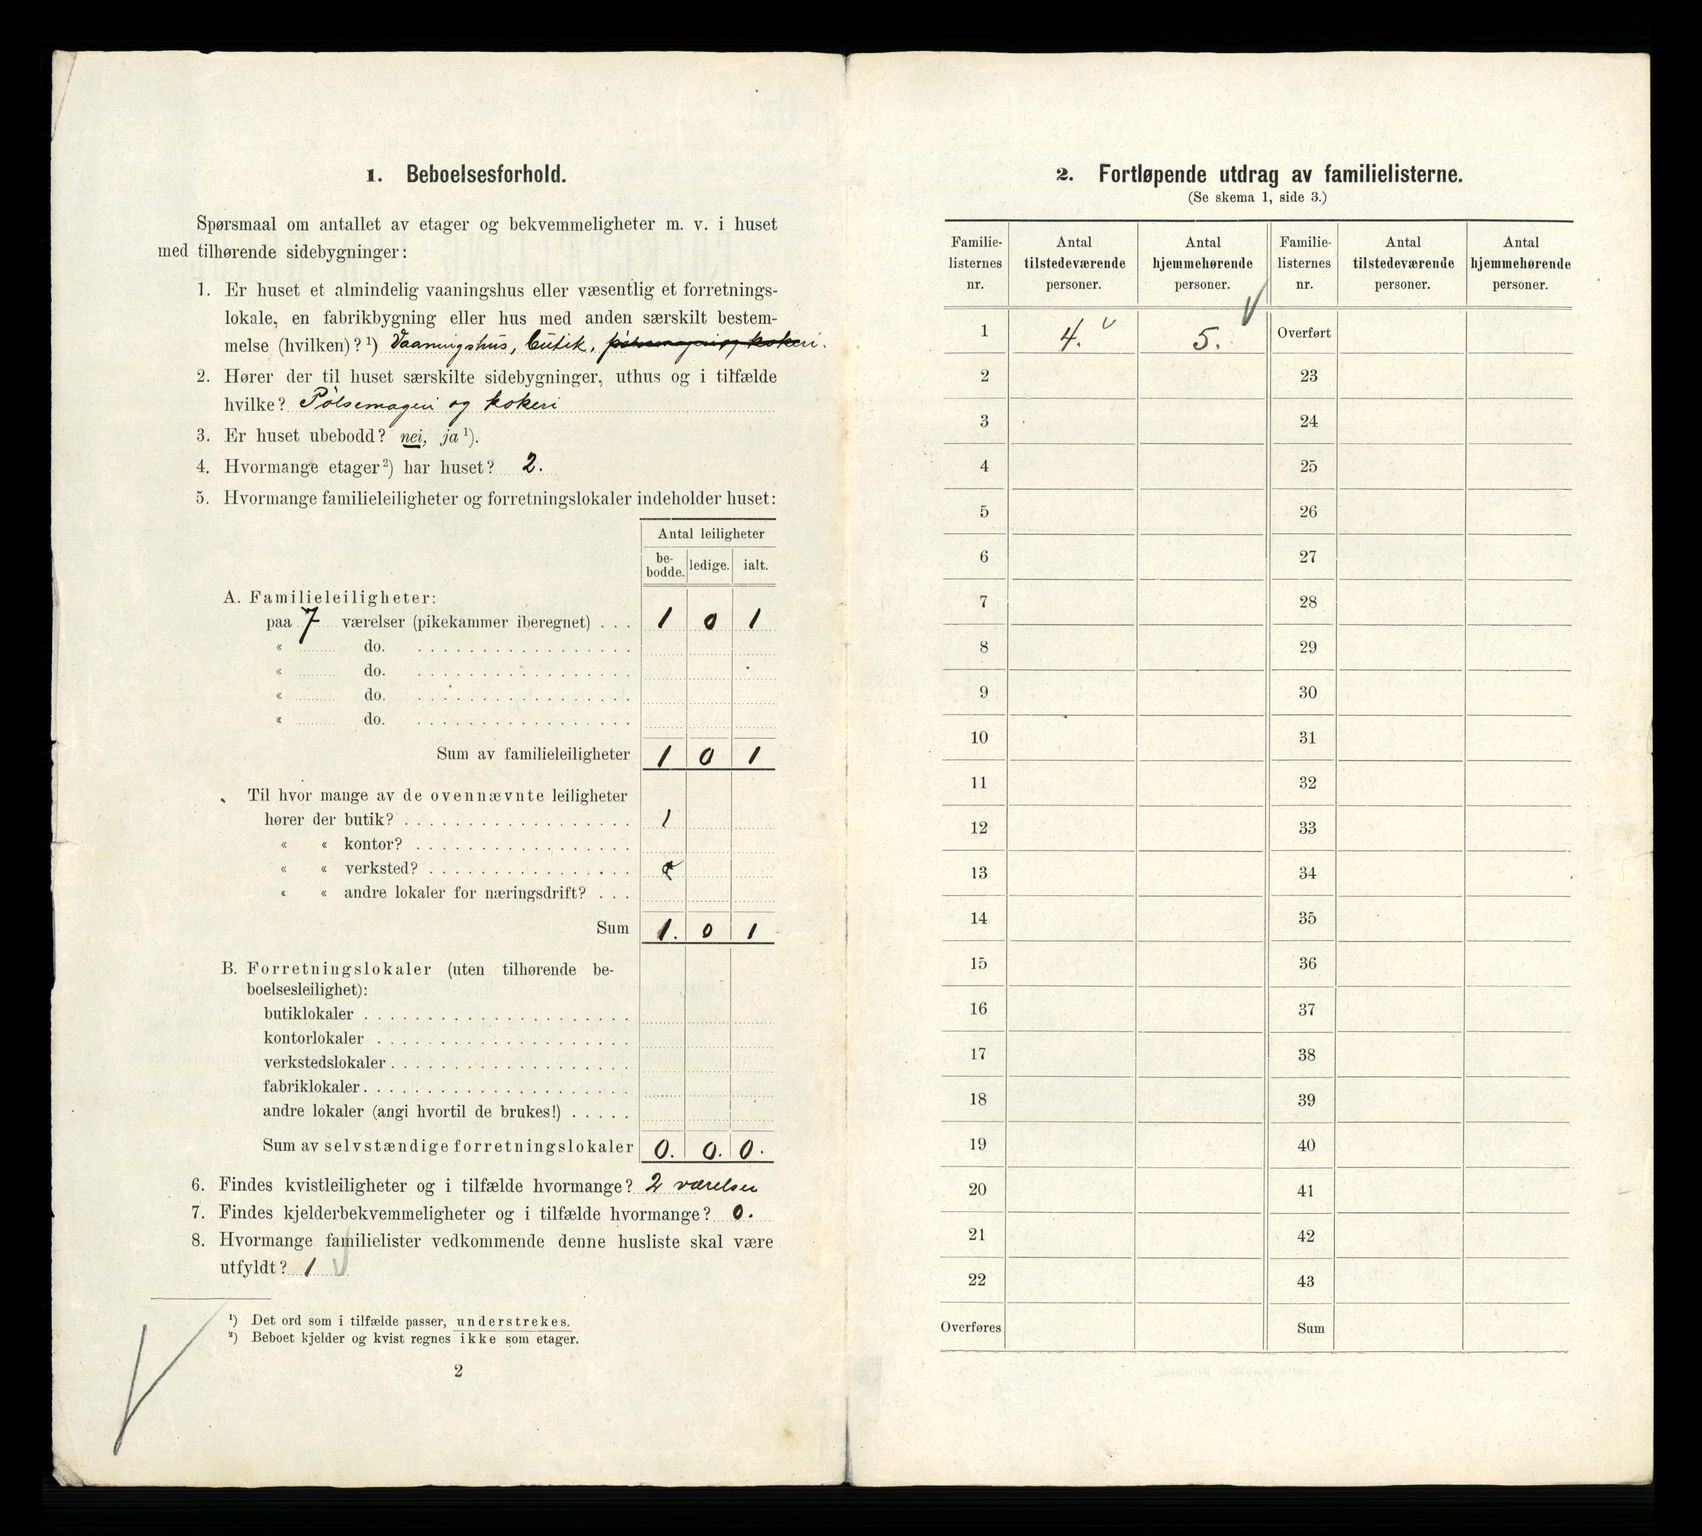 1. Beboelsesforhold.
Spørsmaal om antallet av etager og bekvemmeligheter m. v. i huset
med tilhørende sidebygninger:
1. Er huset et almindelig vaaningshus eller væsentlig et forretnings-
lokale, en fabrikbygning eller hus med anden særskilt bestem-
melse (hvilken)? ¹) Vaaningshus, butik, pølsemageri og kokeri.
2. Hører der til huset særskilte sidebygninger, uthus og i tilfælde
hvilke? Pølsemageri og kokeri
3. Er huset ubebodd? nei, ja ¹).
4. Hvormange etager ²) har huset? 2.
5. Hvormange familieleiligheter og forretningslokaler indeholder huset:
Antal leiligheter
be-bodde. ledige. ialt.
A. Familieleiligheter:
paa 7 værelser (pikekammer iberegnet) . . . 1 0 1
« do.
« do.
« do.
« do.
Sum av familieleiligheter 1 0 1
Til hvor mange av de ovennævnte leiligheter
hører der butik? 1
« « kontor?
« « verksted?
« « andre lokaler for næringsdrift? . . .
Sum 1. 0 1
B. Forretningslokaler (uten tilhørende be-
boelsesleilighet):
butiklokaler
kontorlokaler
verkstedslokaler
fabriklokaler
andre lokaler (angi hvortil de brukes!)
Sum av selvstændige forretningslokaler 0. 0. 0.
6. Findes kvistleiligheter og i tilfælde hvormange? 2 værelser
7. Findes kjelderbekvemmeligheter og i tilfælde hvormange? 0.
8. Hvormange familielister vedkommende denne husliste skal være
utfyldt? 1
¹) Det ord som i tilfælde passer, understrekes.
²) Beboet kjelder og kvist regnes ikke som etager.
2
2. Fortløpende utdrag av familielisterne.
(Se skema 1, side 3.)
Familie-listernes nr. Antal tilstedeværende personer. Antal hjemmehørende personer. Familie-listernes nr. Antal tilstedeværende personer. Antal hjemmehørende personer.
1 4. 5. Overført
2 23
3 24
4 25
5 26
6 27
7 28
8 29
9 30
10 31
11 32
12 33
13 34
14 35
15 36
16 37
17 38
18 39
19 40
20 41
21 42
22 43
Overføres Sum